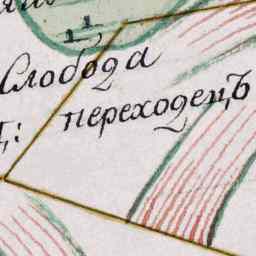 11
Слобода
переходецъ